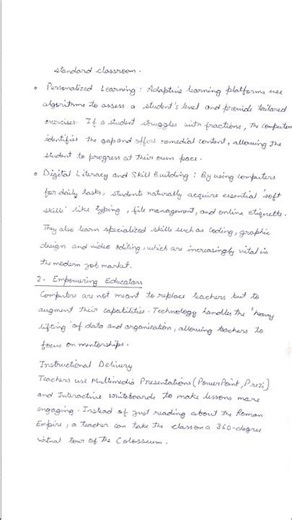 standard classroom.
• Personalized Learning : Adaptive learning platforms use
algorithms to assess a student's level and provide tailored
exercises. If a student struggles with fractions, the computer
identifies the gap and offers remedial content, allowing the
student to progress at their own pace.
• Digital Literacy and Skill Building : By using computers
for daily tasks, students naturally acquire essential 'soft
skills' like typing, file management, and online etiquette.
They also learn specialized skills such as coding, graphic
design and video editing, which are increasingly vital in
the modern job market.
2. Empowering Educators
Computers are not meant to replace teachers but to
augment their capabilities. Technology handles the "heavy
lifting" of data and organization, allowing teachers to
focus on mentorships.
Instructional Delivery
Teachers use Multimedia Presentations (PowerPoint, Prezi)
and Interactive whiteboards to make lessons more
engaging. Instead of just reading about the Roman
Empire, a teacher can take the class on a 360-degree
virtual tour of the Colosseum.